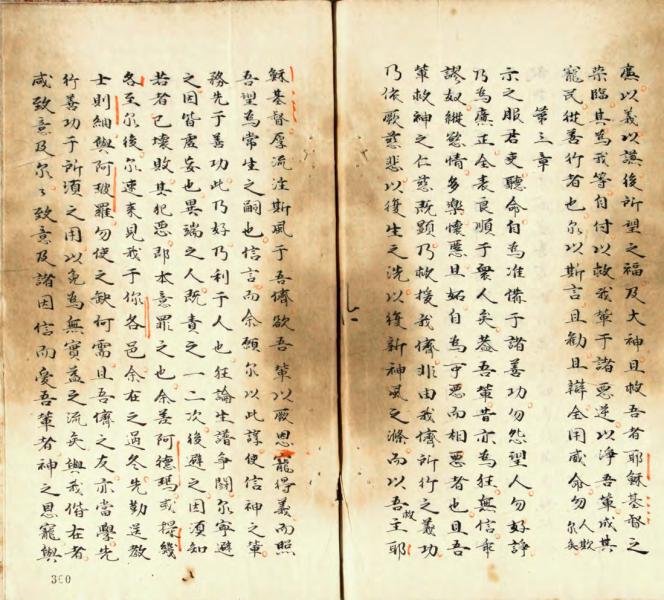 廉以義以讌後所望之福及大神且救吾者耶穌基督之
染臨其為我等自付以救我輩于諸惡逆以淨吾輩成其
寵民從善行者也尔以斯言且勸且辯全用威命勿人欺尔矣
第三章
示之服君吏聽命自為准備于諸善功勿怨詈人勿好諍
乃為廉正全表良順于衆人矣蓋吾輩昔亦為狂無信乖
謬奴縱慾情多樂懷惡且妬自為可惡而相惡者也且吾
輩救神之仁慈既顯乃救援我儕非由我儕所行之義功
乃依厥慈悲以復生之洗以復新神風之滌而以吾救主耶
穌基督厚流注斯風于吾儕欲吾輩以厥恩寵得義而照
吾望為常生之嗣也信言而余願尔以此諄使信神之輩
務先于善功此乃好乃利于人也狂論生譜爭鬬尔寧避
之因皆虛妄也異端之人既責之一二次後避之因須知
若者已壞敗其犯惡即本意罪之也余善阿德瑪或提幾
各至尔後尔速來見我于你各邑余在之過冬先勤送教
士則細與阿玻羅勿使之缺何需且吾儕之友亦當學先
行善功于所須之用以免為無實益之流矣與我偕在者
咸致意及尔尔致意及諸因信而愛吾輩者神之恩寵與
360